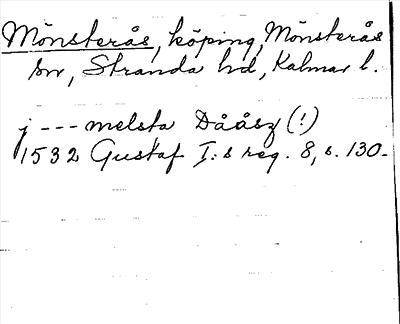 Mönsterås, köping, Mönsterås
sn, Stranda hd, Kalmar l.
j --- melsta Dååsz (!)
1532 Gustaf I:s reg. 8, s. 130.